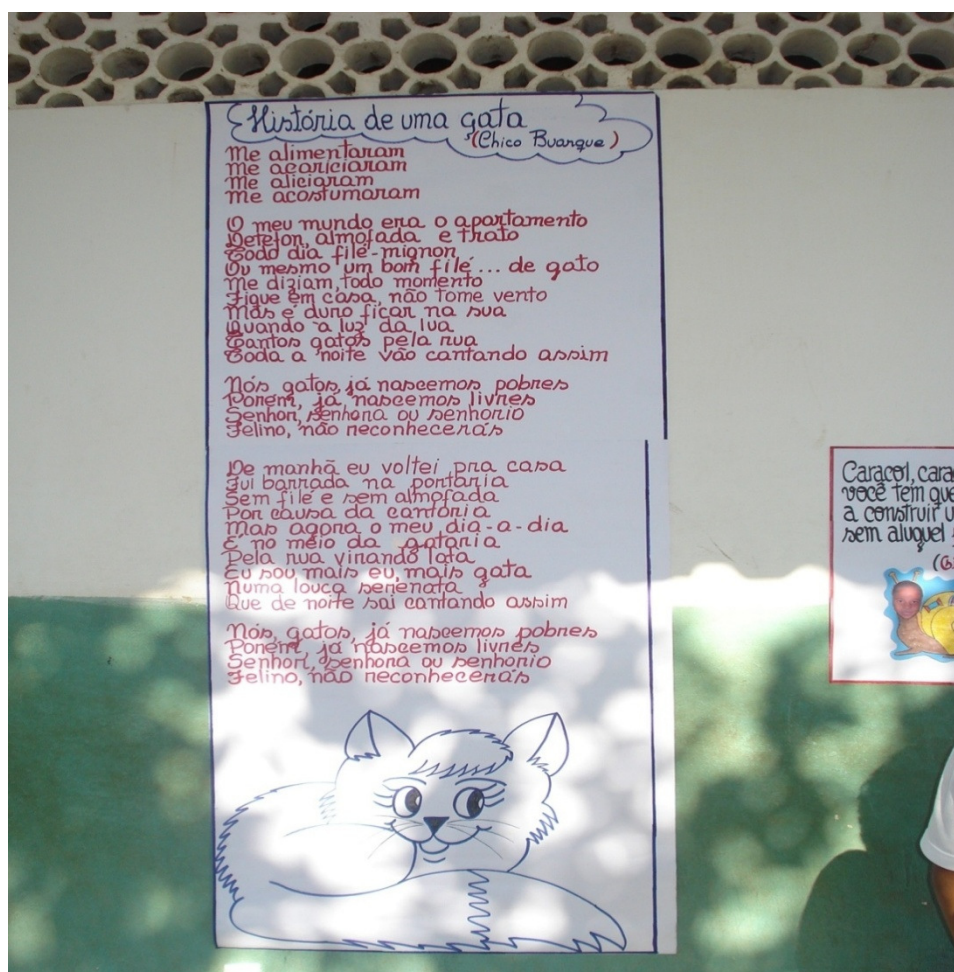 História de uma gata
(Chico Buarque)
Me alimentaram
Me acariciaram
Me aliciaram
Me acostumaram
O meu mundo era o apartamento
Detefon, almofada e trato
Todo dia filé-mignon
Ou mesmo um bom filé... de gato
Me diziam, todo momento
Fique em casa, não tome vento
Mas é duro ficar na sua
Quando a luz da lua
Tantos gatos pela rua
Toda a noite vão cantando assim
Nós, gatos, já nascemos pobres
Porém, já nascemos livres
Senhor, senhora ou senhorio
Felino, não reconhecerás
De manhã eu voltei pra casa
Fui barrada na portaria
Sem filé e sem almofada
Por causa da cantoria
Mas agora o meu dia-a-dia
É no meio da gataria
Pela rua virando lata
Eu sou mais eu, mais gata
Numa louca serenata
Que de noite sai cantando assim
Nós, gatos, já nascemos pobres
Porém, já nascemos livres
Senhor, senhora ou senhorio
Felino, não reconhecerás
Caracol,
você tem
a construir
sem aluguel